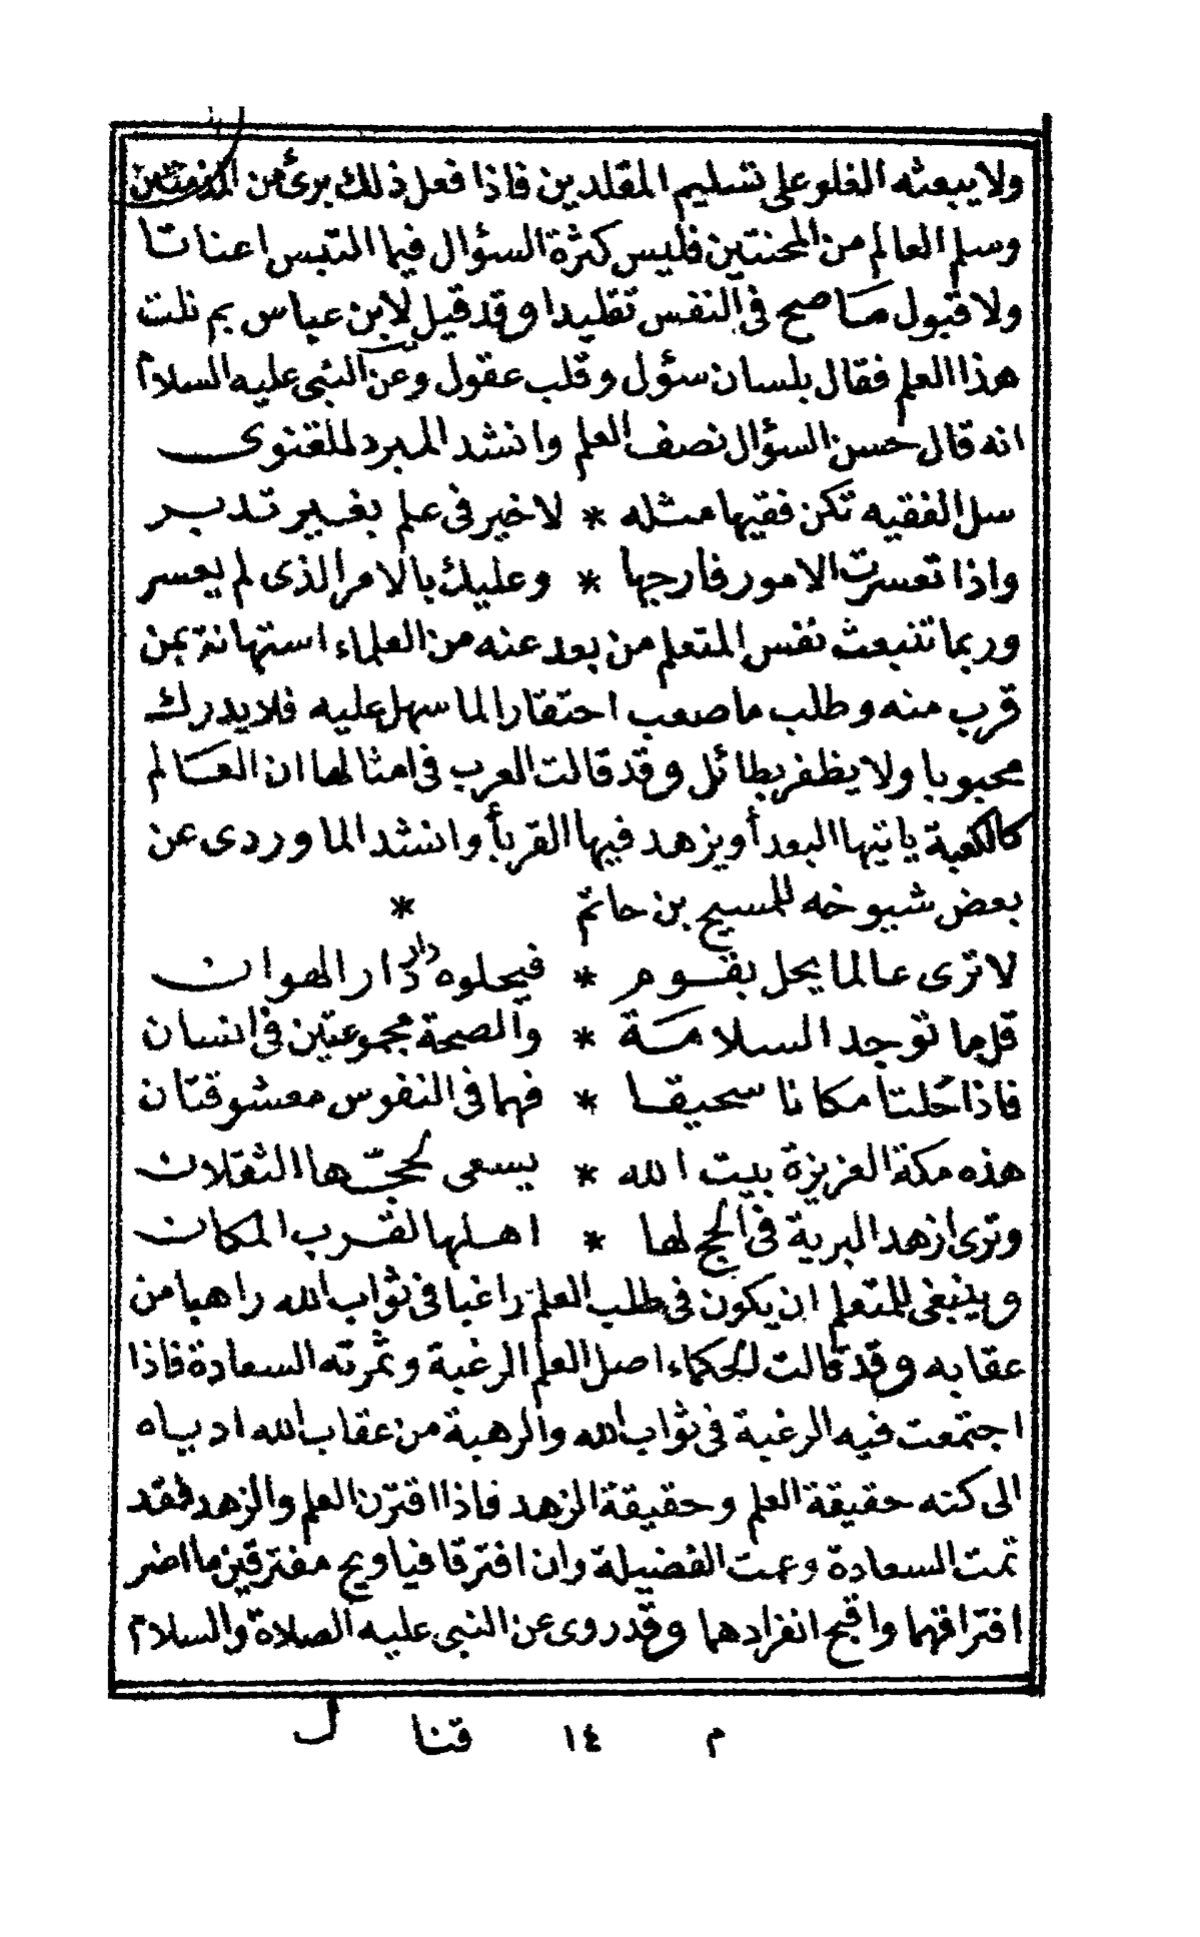 ولا يبعثه الغلو على تسليم المقلدين فاذا فعل ذلك برئ من المذمتين
وسلم العالم من المحنتين فليس كثرة السؤال فيما التبس اعناتا
ولا قبول ماصح فى النفس تقليدا وقد قيل لابن عباس بم نلت
هذا العلم فقال بلسان سؤل وقلب عقول وعن النبى عليه السلام
انه قال حسن السؤال نصف العلم وانشد المبرد للغنوى
سل الفقيه تكن فقيها مثله * لا خير فى علم بغير تدبر
واذا تعسرت الامور فارجها * وعليك بالامر الذى لم يعسر
وربما تنبعث نفس المتعلم من بعد عنه من العلماء استهانة بمن
قرب منه وطلب ماصعب احتقارا لما سهل عليه فلا يدرك
محبوبا ولا يظفر بطائل وقد قالت العرب فى امثالها ان العالم
كالكعبة ياتيها البعدأ ويزهد فيها القربأ وانشد الماوردى عن
بعض شيوخه للمسيح بن حاتم *
لا ترى عالما يحل بقوم * فيحلوه دار دار الهوان
قل ما توجد السلامة * والصحة مجموعتين فى انسان
فاذا حلتا مكانا سحيقا * فهما فى النفوس معشوقتان
هذه مكة العزيزة بيت الله * يسعى لحجّها الثقلان
وترى ازهد البرية فى الحج لها * اهلها لقرب المكان
وينبغى للمتعلم ان يكون فى طلب العلم راغبا فى ثواب الله راهبا من
عقابه وقد قالت الحكماء اصل العلم الرغبة وثمرته السعادة فاذا
اجتمعت فيه الرغبة فى ثواب الله والرهبة من عقاب الله ادياه
الى كنه حقيقة العلم وحقيقة الزهد فاذا اقترن العلم والزهد فقد
تمت السعادة وعمت الفضيلة وان افترقا فيا ويح مفترقين ما اضر
افتراقهما واقبح انفرادهما وقد روى عن النبى عليه الصلاة والسلام
م ١٤ قنا ل